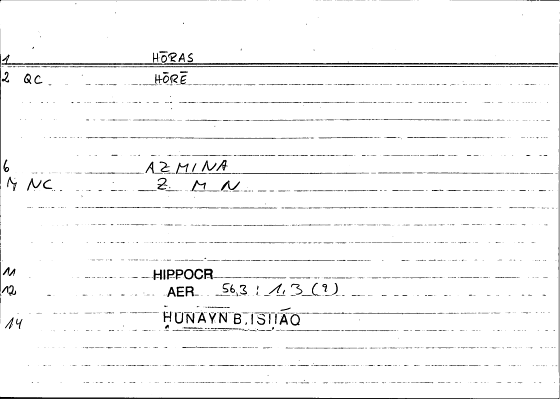 1 HŌRAS
2 QC HŌRĒ
6 AZMINA
M NC Z M N
11 HIPPOCR
12 AER 56,3 : 1,3 (?)
14 ḤUNAYN B. ISḤĀQ